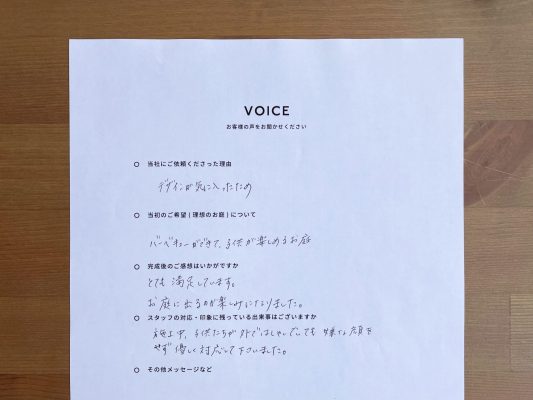 VOICE
お客様の声をお聞かせください
当社にご依頼くださった理由
デザインが気に入ったため
当初のご希望(理想のお庭)について
バーベキューができて、子供が楽しめるお庭
完成後のご感想はいかがですか
とても満足しています。
お庭に出るのが楽しみになりました。
スタッフの対応・印象に残っている出来事はございますか
施工中、子供たちが外ではしゃいでいても嫌な顔を
せず優しく対応して下さいました。
その他メッセージなど